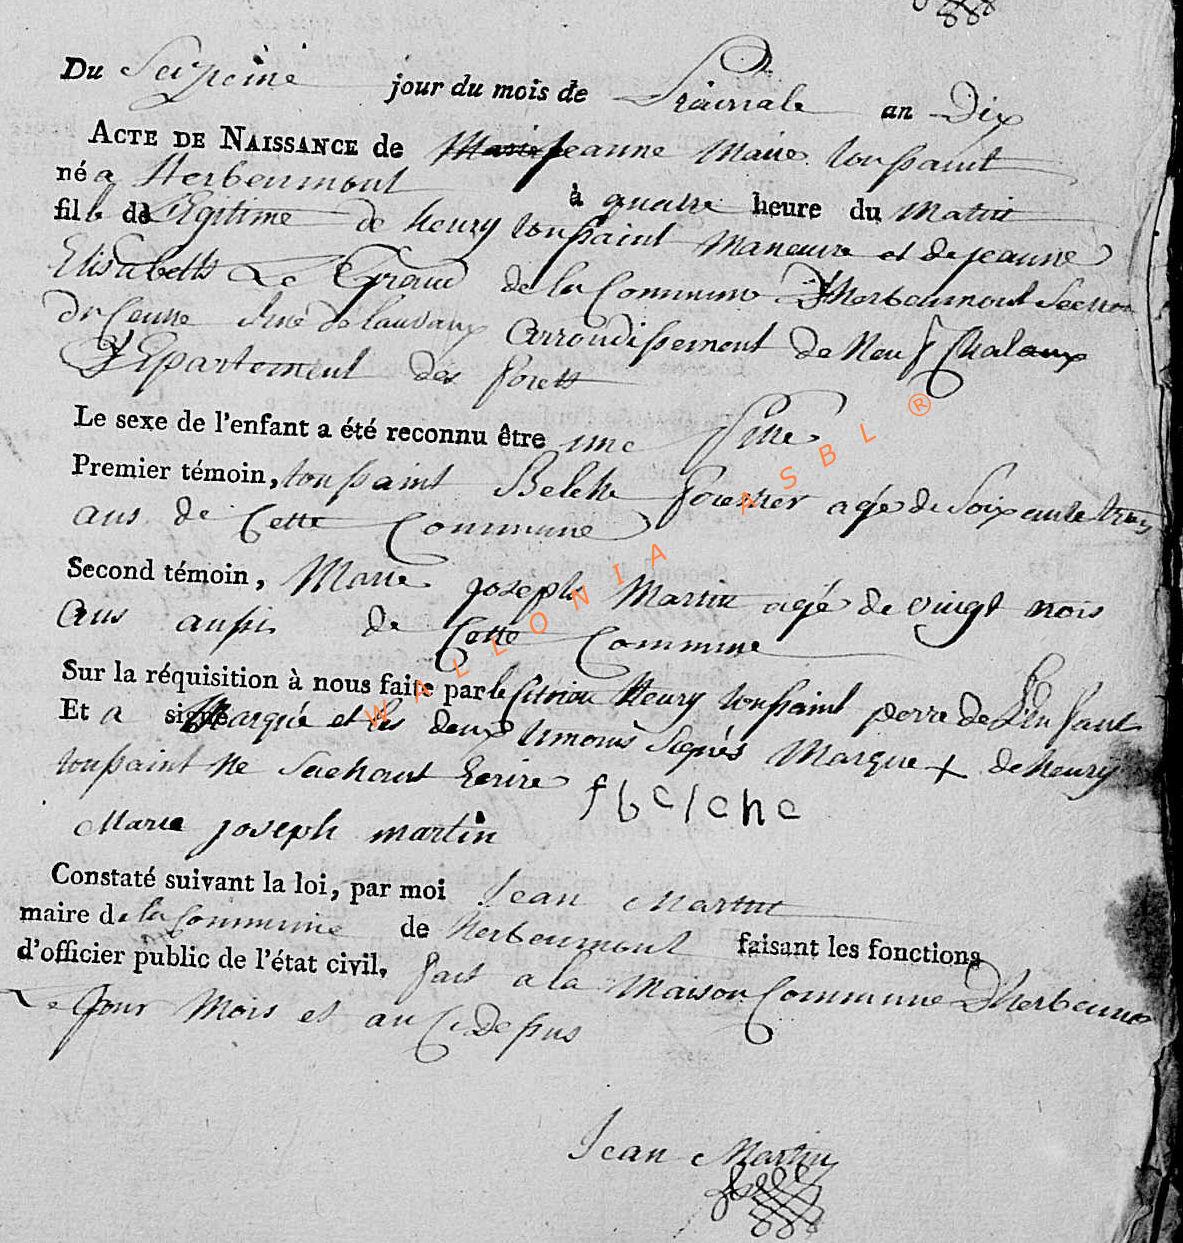 Du Seizieme jour du mois de Prairiale an Dix
ACTE DE NAISSANCE de Marie jeanne Marie toussaint
né a Herbeumont à quatre heure du Matin
fille de Légitime de henry toussaint Maneuvre et de jeanne
Elisabeth Le Grand de la Commune D'herbeumont Section
arrondissement de Neufchataux
D'Epartement des forets
Le sexe de l'enfant a été reconnu être une fille
Premier témoin, toussaint Belche agé de Soixante trois
ans de Cette Commune
Second témoin, Marie joseph Martin agé de vingt trois
ans aussi de Cette Commune
Sur la réquisition à nous faite par le Citoien Henry toussaint perre de L'Enfant
Et a signé Marqué et les deux temoins Signés Marque + de henry
toussaint ne Sachant Ecrire f belche
Marie joseph martin
Constaté suivant la loi, par moi Jean Martin
maire de la Commune de herbeumont faisant les fonctions
d'officier public de l'état civil, fait a la Maison Commune D'herbeumont
Le jour Mois et an Ci Dessus
Jean Martin
WALLONIA ASBL ®